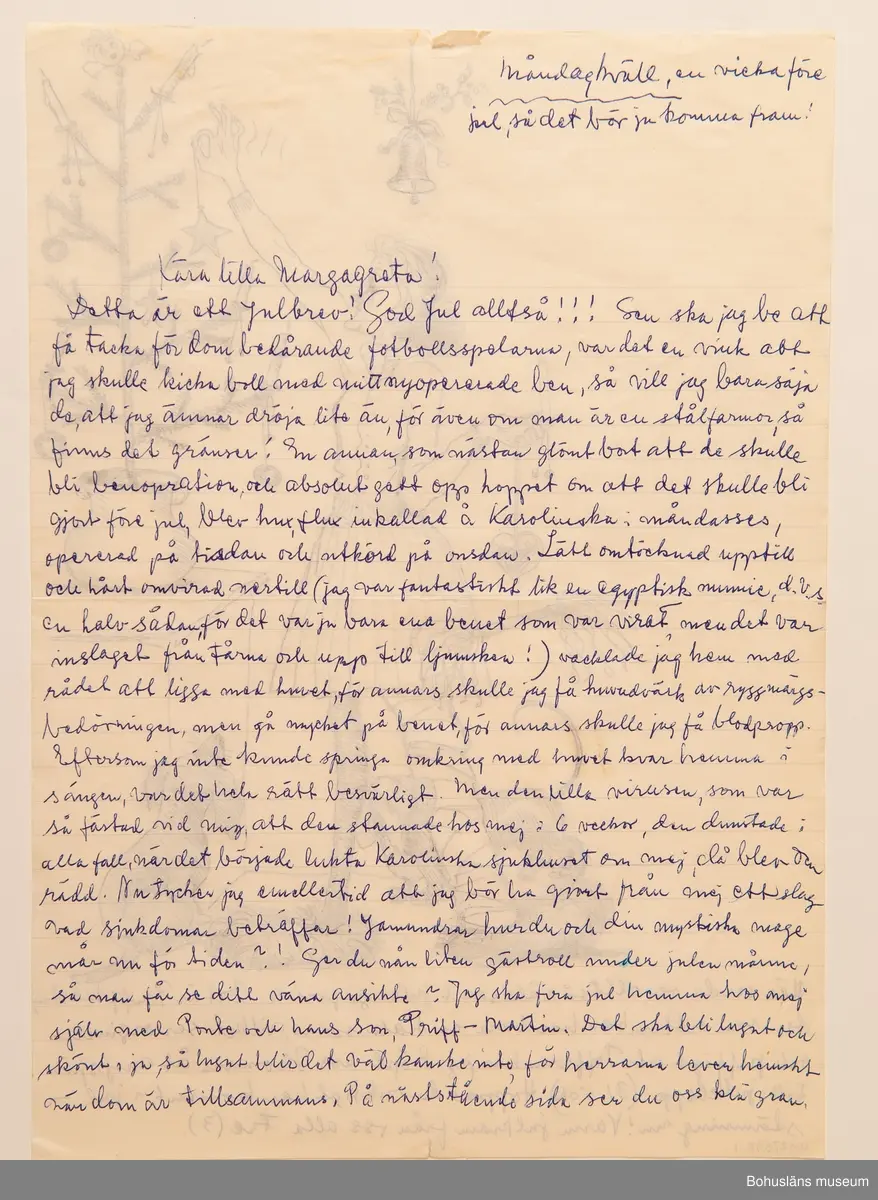 Måndagkväll, en vicka före
jul, så det bör ju komma fram!
Kära lilla Margagreta!
Detta är ett Julbrev! God Jul alltså!!! Sen ska jag be att
få tacka för dom bedårande fotbollsspelarna, var det en vink att
jag skulle kicka boll med mitt nyopererade ben, så vill jag bara säja
de, att jag ämnar dröja lite än, för även om man är en stålfarmor, så
finns det gränser! En annan, som nästan glömt bort att de skulle
bli benopration, och absolut gett opp hoppet om att det skulle bli
gjort före jul, blev hux flux inkallad å Karolinska i måndasses,
opererad på tisdan och utkörd på onsdan. Lätt omtöcknad upptill
och hårt omvirad nertill (jag var fantastiskt lik en egyptisk mumie, d.v.s.
en halv sådan, för det var ju bara ena benet som var virat, men det var
inslaget från tårna och upp till ljumsken!) vacklade jag hem med
rådet att ligga med huvet, för annars skulle jag få huvudvärk av ryggmärgs-
bedövningen, men gå mycket på benet, för annars skulle jag få blodpropp.
Eftersom jag inte kunde springa omkring med huvet kvar hemma i
sängen, var det hela rätt besvärligt. Men den lilla virusen, som var
så fästad vid mig, att den stannade hos mej i 6 veckor, den dunstade i
alla fall, när det började lukta Karolinska sjukhuset om mej, då blev den
rädd. Nu tycker jag emellertid att jag bör ha gjort från mej ett slag
vad sjukdomar beträffar! Jamundrar hur du och din mystiska mage
mår nu för tiden?! Ger du nån liten gästroll under julen månne,
så man får se ditt väna ansikte? Jag ska fira jul hemma hos mej
själv med Ponte och hans son, Priff-Martin. Det ska bli lugnt och
skönt, ja, så lugnt blir det väl kanske inte, för herrarna lever hemskt
när dom är tillsammans. På nästståendе sida ser du oss klä gran.
Bohusläns museum